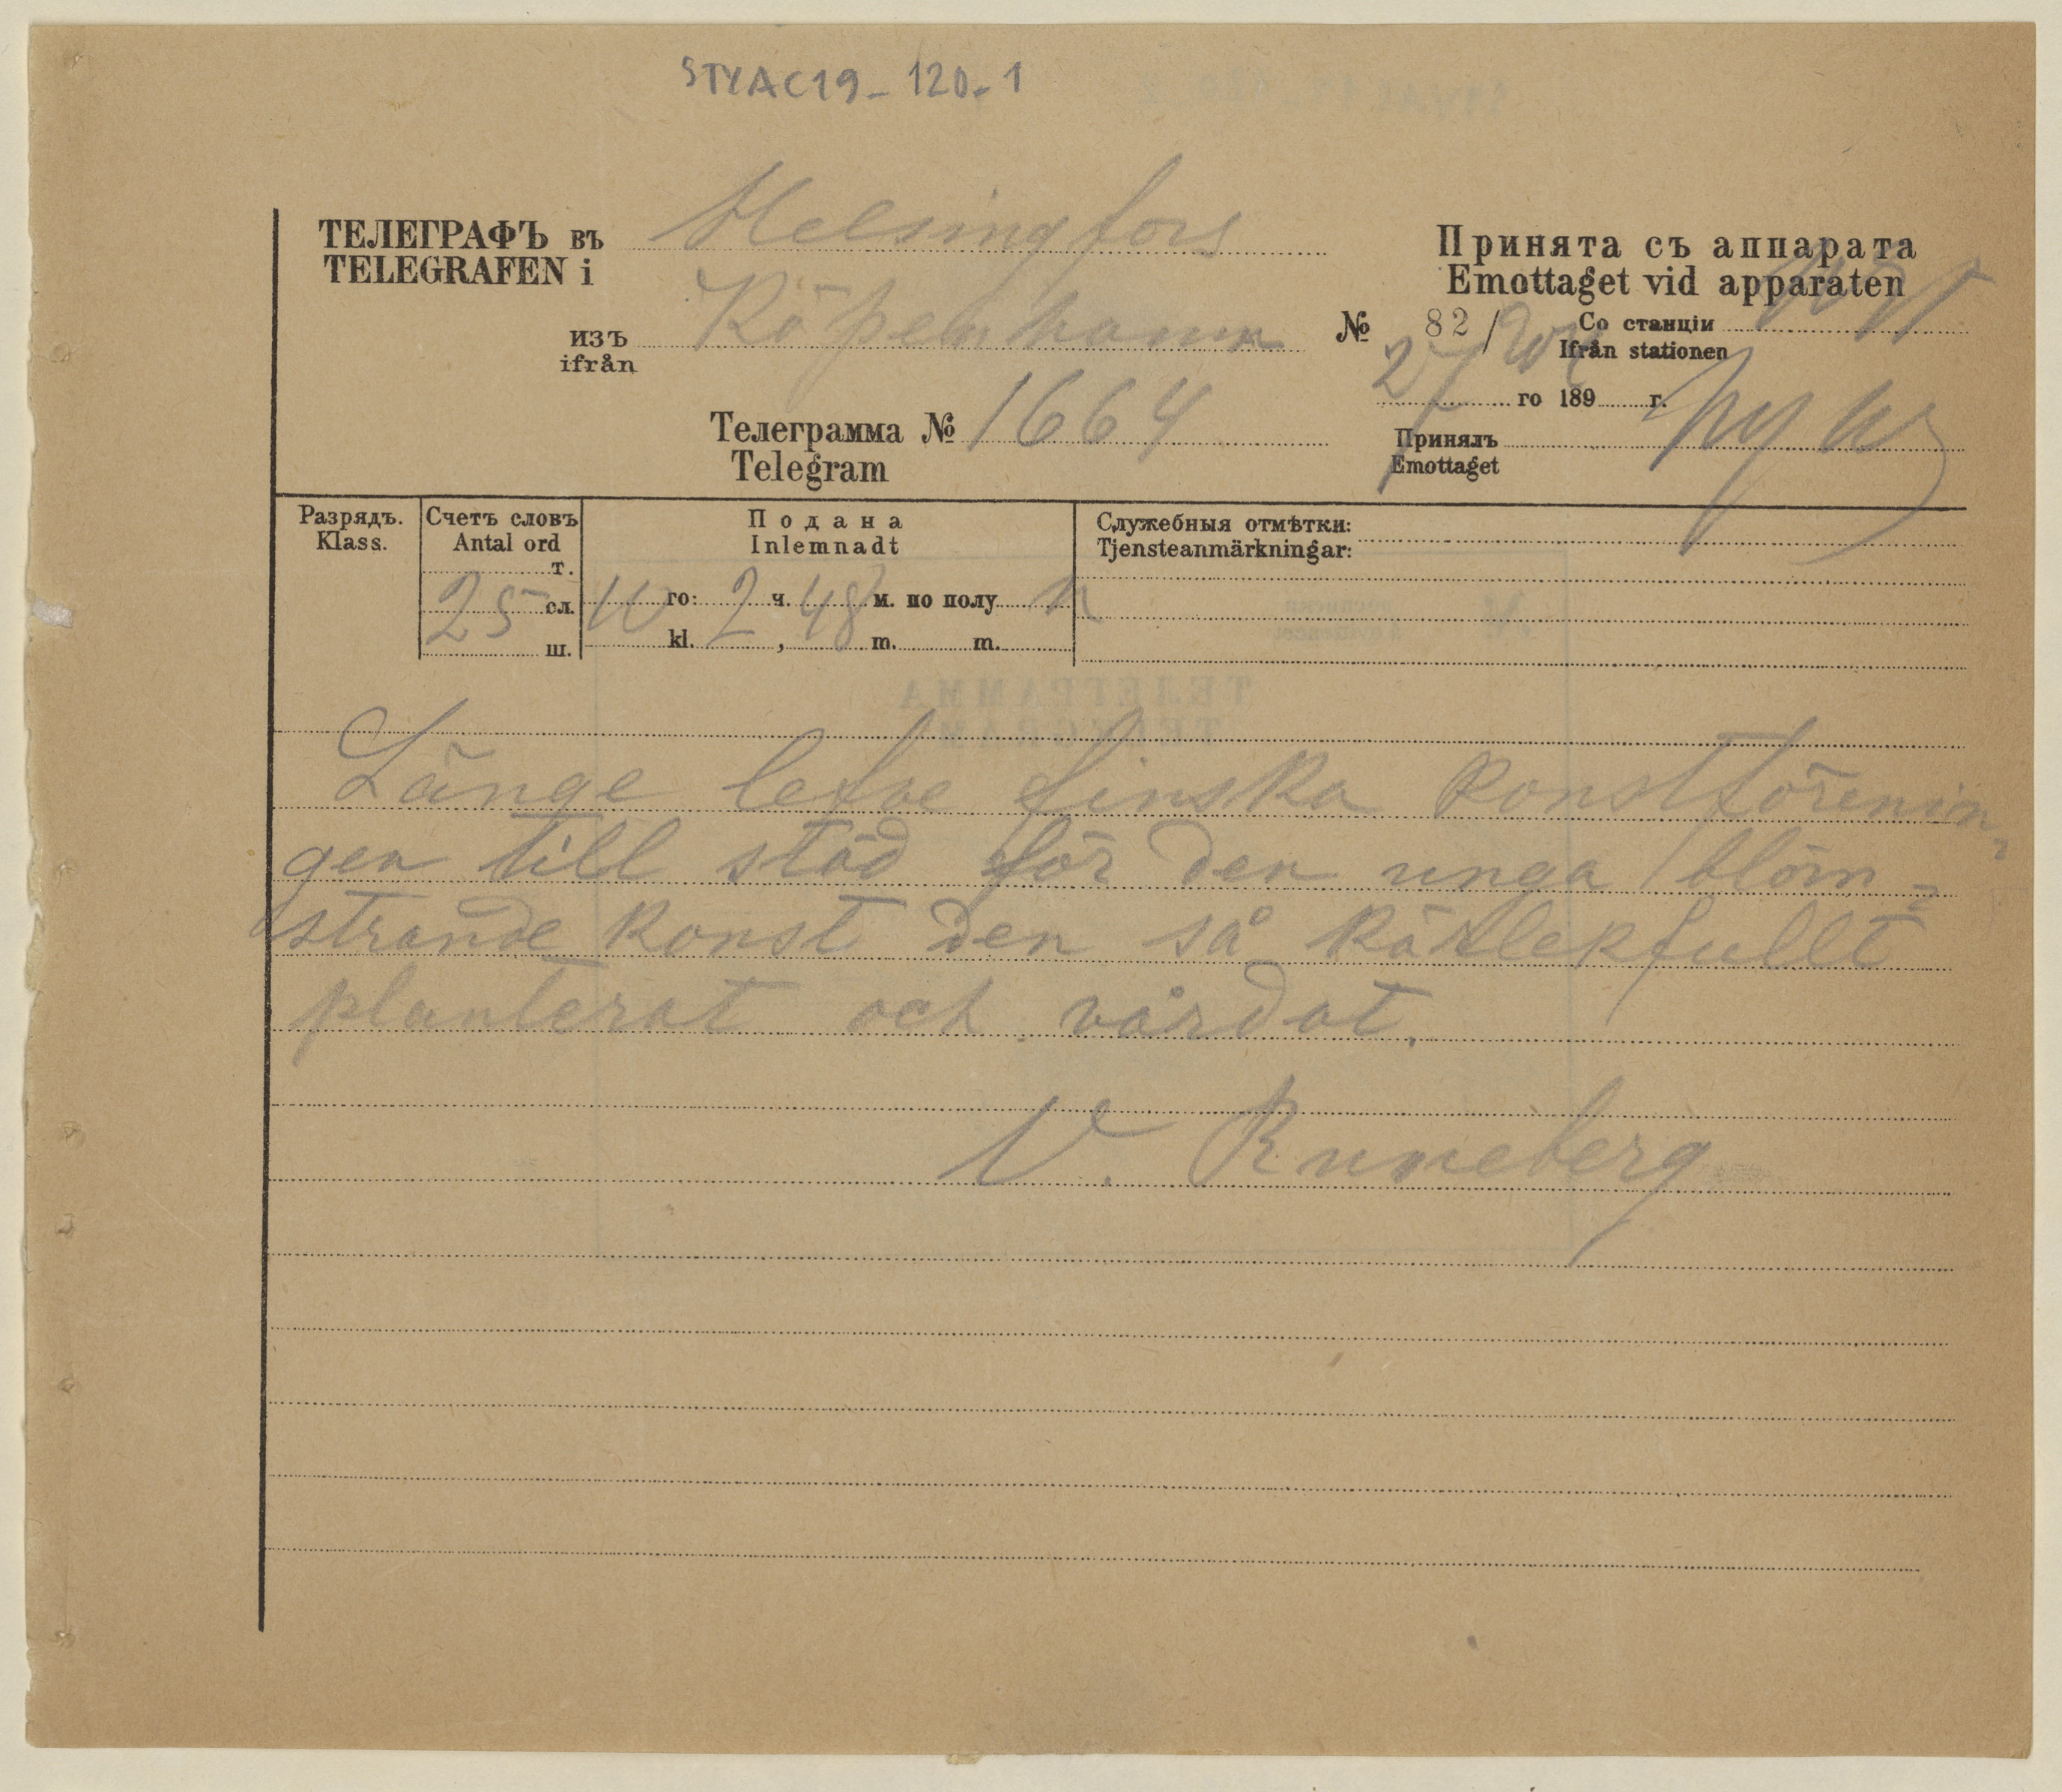 STYAC19-120-1
ТЕЛЕГРАФЪ въ Helsingfors
TELEGRAFEN i
изъ Köpenhamn
ifrån
Телеграмма № 1664
Telegram
Принята съ аппарата
Emottaget vid apparaten
№ 82/ Со станціи
Ifrån stationen
го 189 г.
Принялъ
Emottaget
Разрядъ.
Klass.
Счетъ словъ
Antal ord
т.
25 сл.
ш.
Подана
Inlemnadt
10 го: 2 ч. 48 м. по полу n
kl. , m. m.
Служебныя отмѣтки:
Tjensteanmärkningar:
Länge lefve finska konstförenin-
gen till stöd för den unga blom-
strande konst den så kärlekfullt
planterat och vårdat.
V. Runeberg